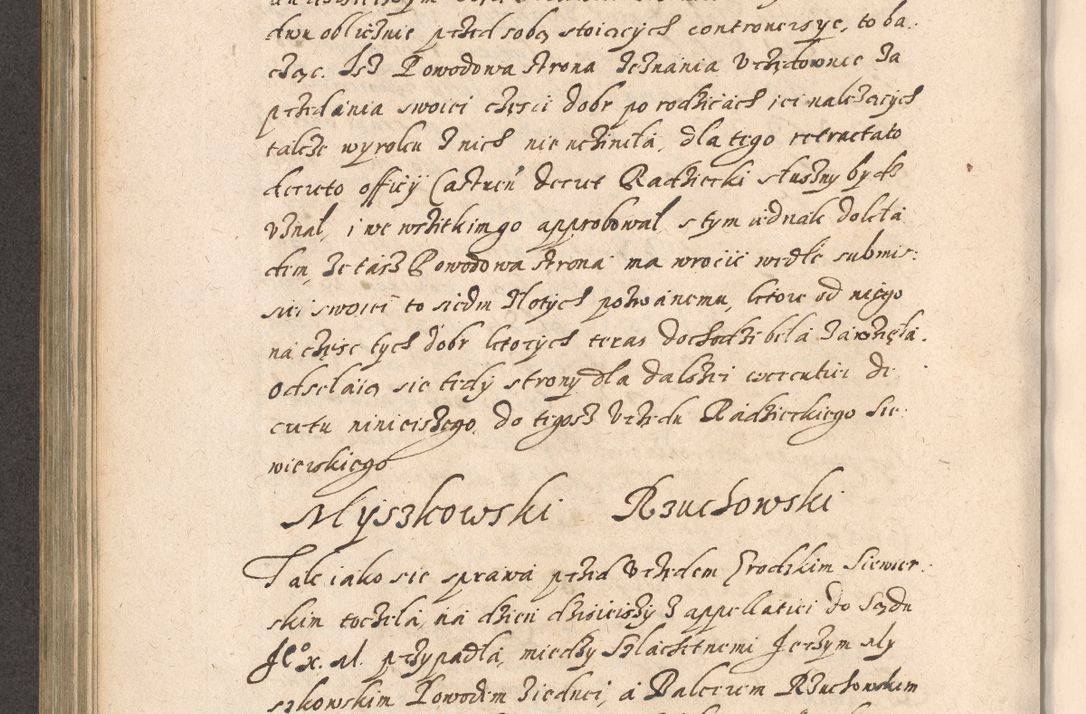 dwu oblicznie przed sobą stoiących controuersye, to ba
cząc. Isz Powodowa strona Zeznania Vrzędownie Za
przedania swoiei części dobr po rodzicach iei należących
także wyroku z nich nie ucziniła, dla tego retractato
decreto officij Castren decret Radziecki słuszny bydź
Vznał, i we wszitkim go approbował, s tym iednak dokła
dem, że taiż Powodowa strona ma wrocić wedle submis:
siei swoiei to siedm złotych pozwanemu, ktore od niego
na część tych dobr ktorych teras dochodzi beła Zawzięła.
Odselaią sie tedy strony dla dalszei executiei de
cretu ninieiszego do tegosz Vrzędu Radzieckiego Sie
wierskiego
Myszkowski Rzuchowski
Tak iako sie sprawa przed Vrzędem Grodzkim Siewier
skim toczeła, na dzien dzisieiszy z appellatiei do Sądu
Je° x. M. przypadła, miedzy Szlachetnemi Jerzym My
szkowskim Powodem Ziednei, a Balcerem Rzuchowskim